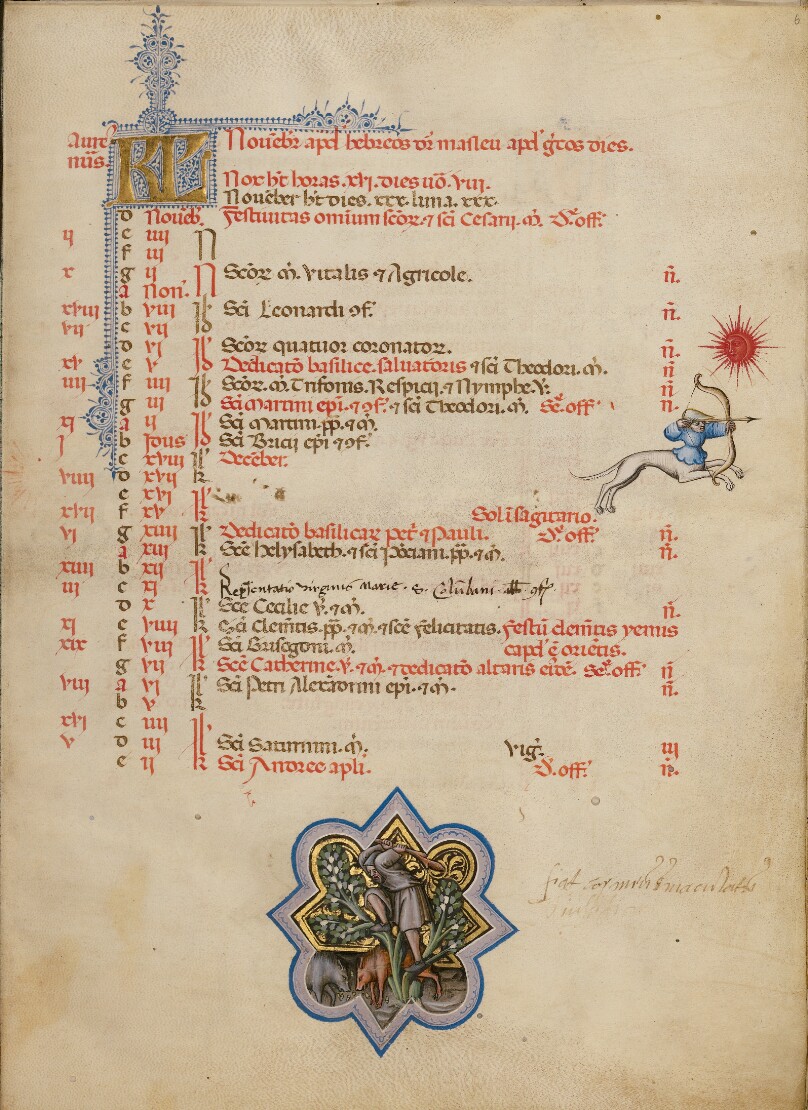 6
Aure⁊ nus. KL Nouēbr̄ apd̄ hebreos dr̄ masleu apd̄ gr̄cos dies.
Nox ht̄ horas. xvi. dies uō. viii.
Nouēber ht̄ dies. xxx. luna. xxx.
d Nouēb. Festiuitas omnium scōꝝ. ⁊ sc̄i Cesarii. m̄. off.
ii e iiii N
f iii
x g ii N Scōꝝ m̄. Vitalis ⁊ Agricole. n̄.
a Non.
xviii b viii Id Sc̄i Leonardi ꝯf. n̄.
vii c vii Id
d vi Id Scōꝝ quatuor coronatoꝝ. n̄.
xv e v Id Dedicatō basilice saluatoris ⁊ sc̄i Theodori. m̄. n̄
iiii f iiii Id Scōꝝ. m̄. Trifonis. Respicii. ⁊ Nymphe. v̄. n̄
g iii Id Sc̄i Martini ep̄i. ⁊ ꝯf. ⁊ sc̄i Theodori. m̄. off. n̄.
xii a ii Id Sc̄i Martini. pp̄. ⁊ m̄.
i b Idus Id Sc̄i Bricii ep̄i ⁊ ꝯf.
c xviii k Decēber.
viiii d xvii k
e xvi k
xvii f xv k Sol ī sagitario.
vi g xiiii k Dedicatō basilicaꝝ petri ⁊ Pauli. off. n̄.
a xiii k Sc̄e helysabeth. ⁊ sc̄i Pōciani. pp̄. ⁊ m̄. n̄.
xiiii b xii k
iii c xi k Repsentatio virginis marie. S. Colūbani. abb. ꝯff.
d x k Sc̄e Cecilie v̄. ⁊ m̄. n̄.
xi e viiii k Sc̄i Clemētis. pp̄. ⁊ m̄. ⁊ sc̄e felicitatis. Festū clemētis yemis
xix f viii k Sc̄i Grisogoni. m̄. capd̄ ē orietis.
g vii k Sc̄e Catherine. v̄. ⁊ m̄. ⁊ dedicatō altaris eiꝰdē. off. n̄
viii a vi k Sc̄i Petri Alexādrini ep̄i. ⁊ m̄. n̄.
b v k
xvi c iiii k
v d iii k Sc̄i Saturnini. m̄. vig̃. iii
e ii k Sc̄i Andree apl̄i. D. off. n̄.
fiat cor